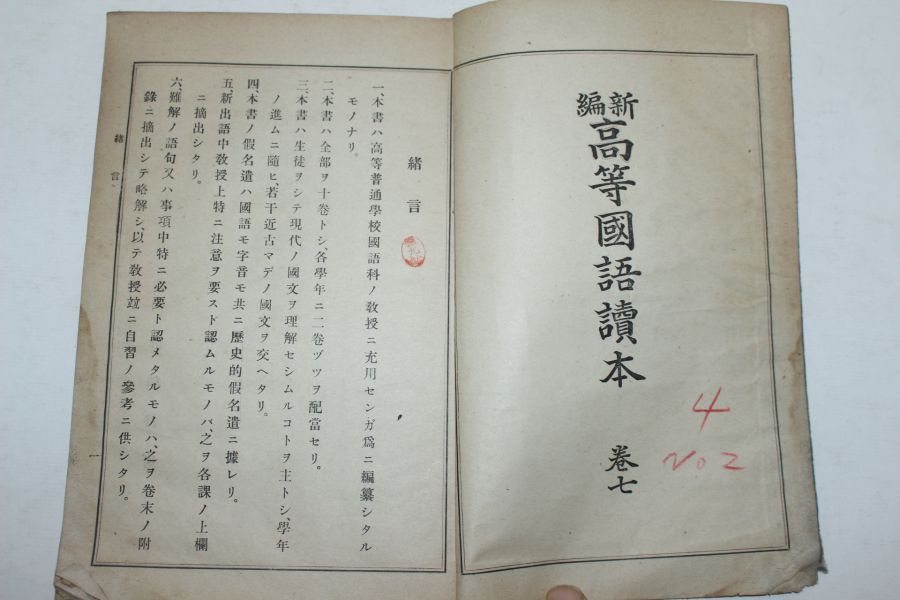 新編
高等國語讀本 卷七
4
No 2
緒言
一、本書ハ高等普通學校國語科ノ敎授ニ充用センガ爲ニ編纂シタル
モノナリ。
二、本書ハ全部ヲ十卷トシ、各學年ニ二卷ヅツヲ配當セリ。
三、本書ハ生徒ヲシテ現代ノ國文ヲ理解セシムルコトヲ主トシ、學年
ノ進ムニ隨ヒ、若干近古マデノ國文ヲ交ヘタリ。
四、本書ノ假名遣ハ國語モ字音モ共ニ歷史的假名遣ニ據レリ。
五、新出語中敎授上特ニ注意ヲ要スト認ムルモノハ、之ヲ各課ノ上欄
ニ摘出シタリ。
六、難解ノ語句又ハ事項中特ニ必要ト認メタルモノハ、之ヲ卷末ノ附
錄ニ摘出シテ略解シ、以テ敎授竝ニ自習ノ參考ニ供シタリ。
緒言
一